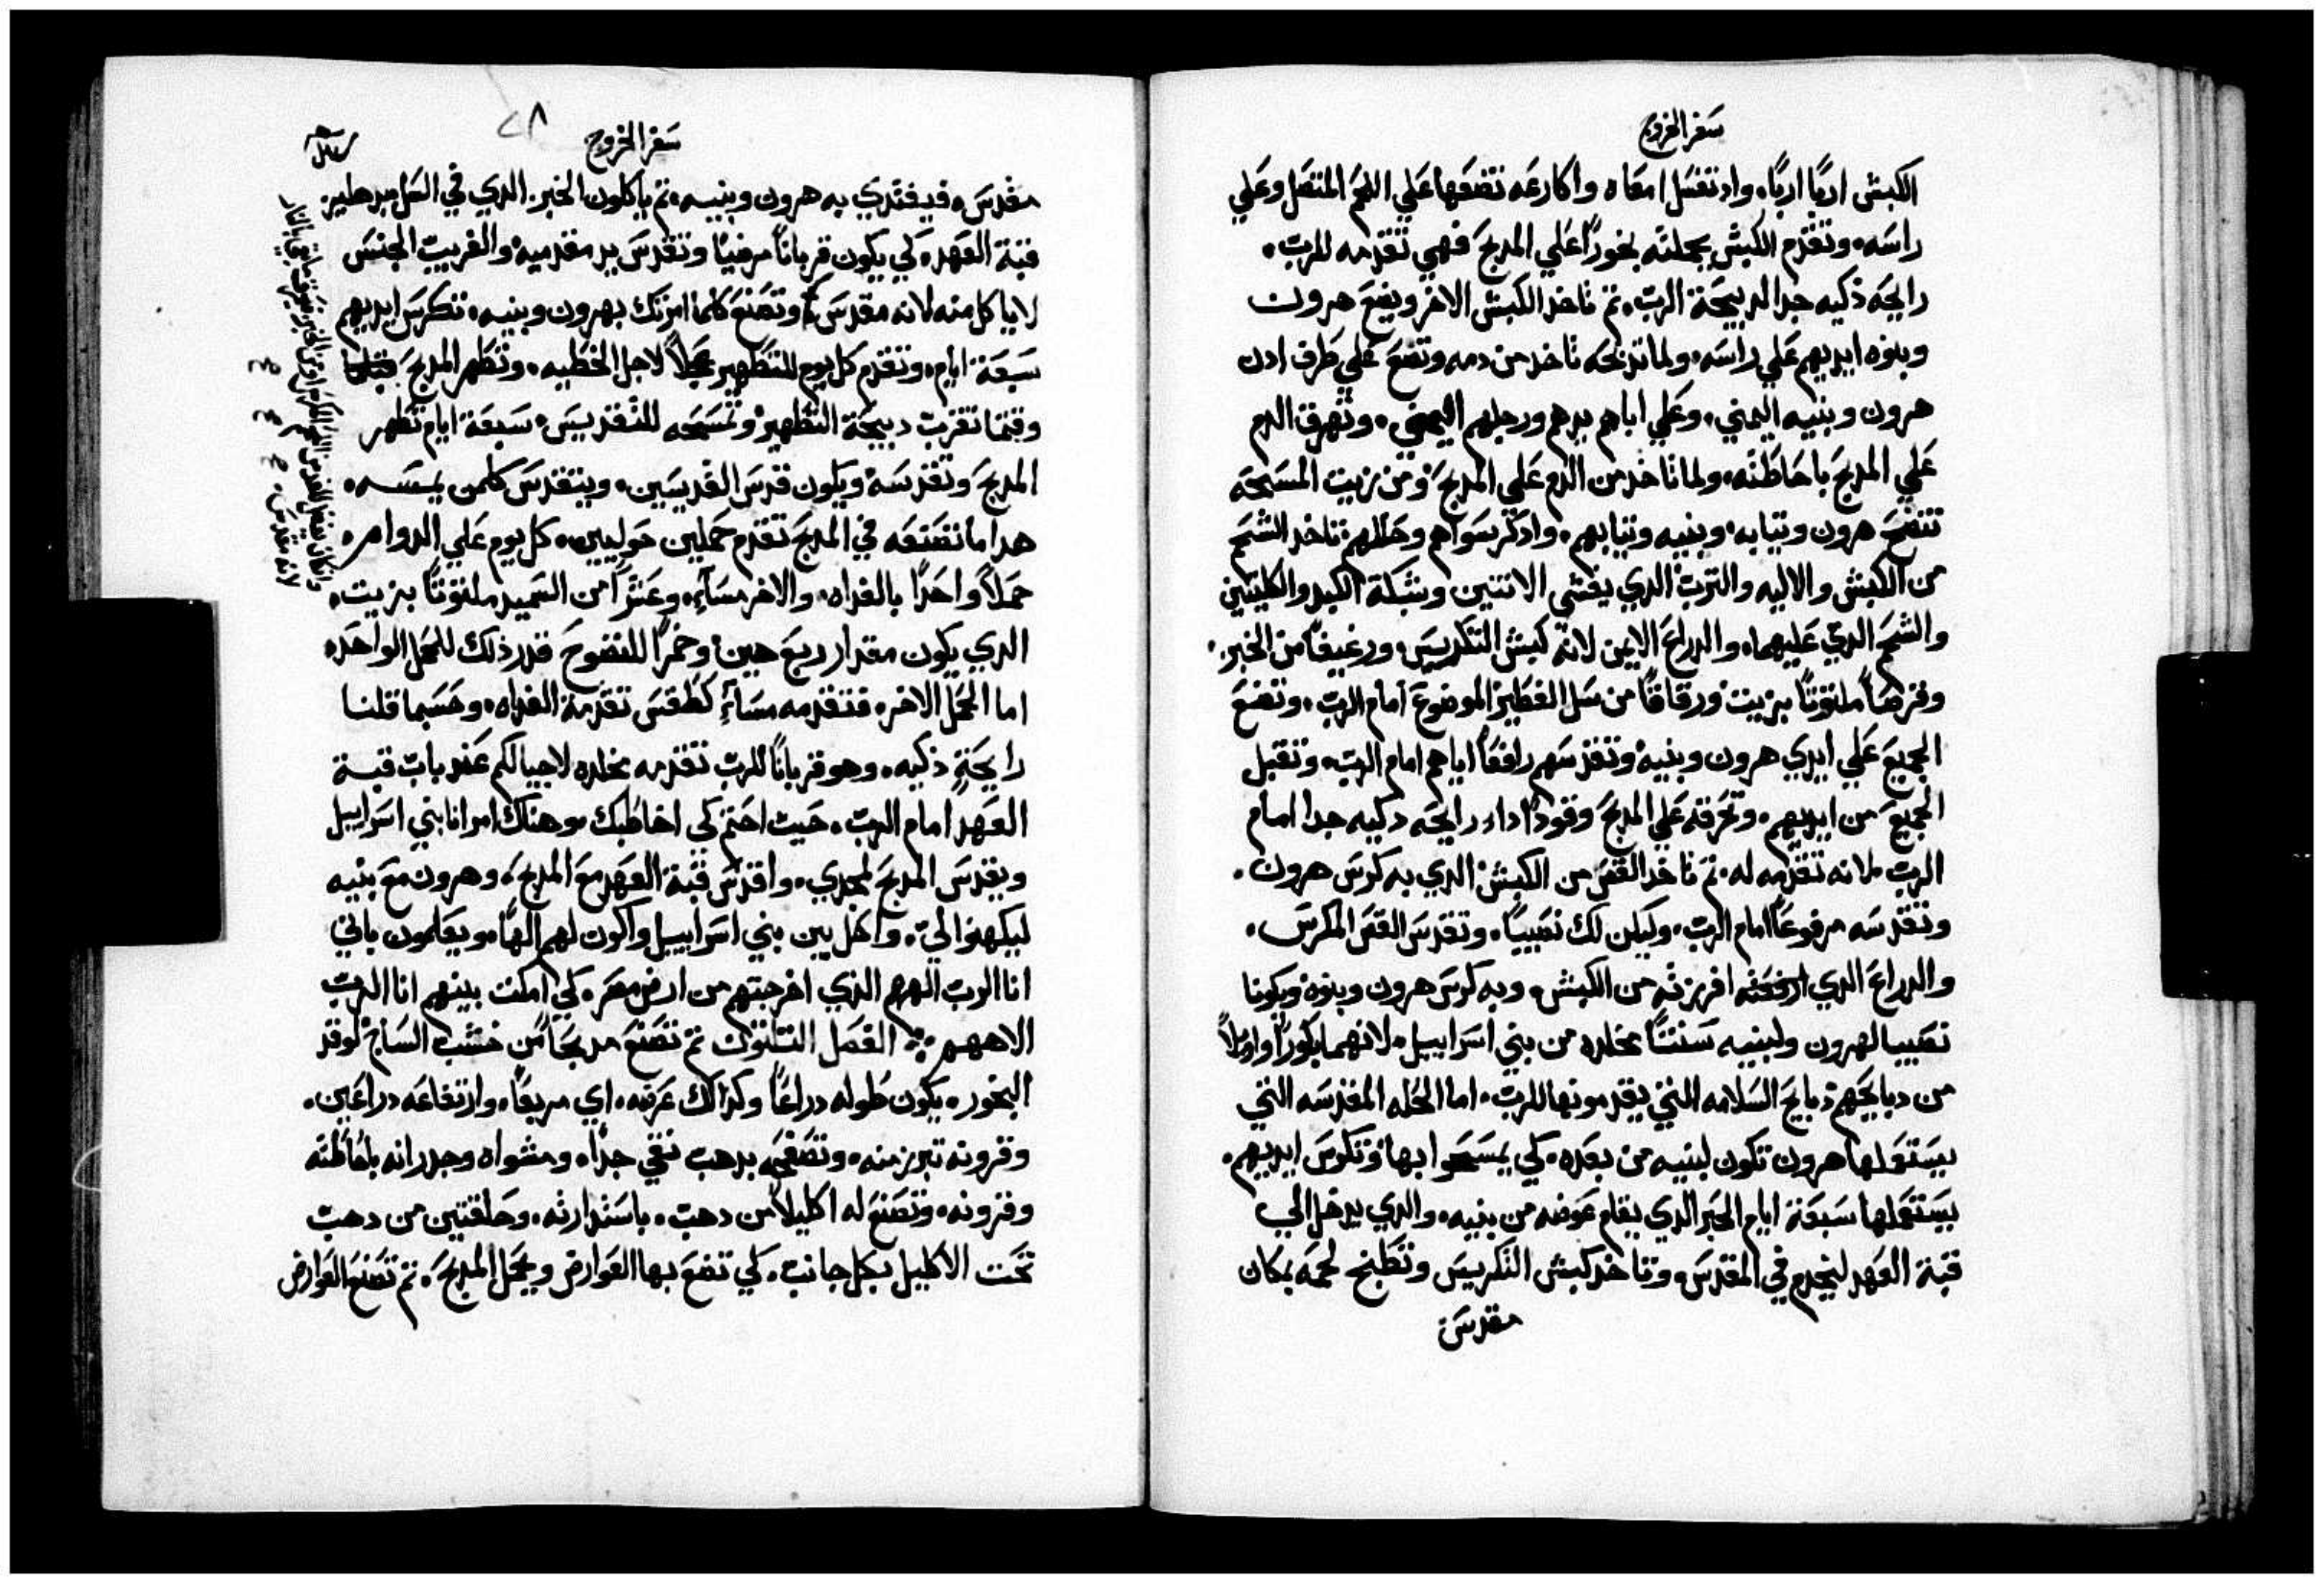 سفر الخروج
الكبش اربًا اربًا. واد تغسل امعاه واكارعه تضعها علي اللحم المنفصل وعلي
راسه. وتقدم الكبش بجملته بخورًا علي المدبح فهي تقدمه للرب.
رايحه ذكيه جدا لدبيحة الرب. تم تاخد الكبش الاخر ويضع هرون
وبنوه ايديهم علي راسه. ولما تدبحه تاخد من دمه وتضع علي طرف ادن
هرون وبنيه اليمني. وعلي اباهم يدهم ورجلهم اليمني. وتهرق الدم
علي المدبح باحاطته. ولما تاخد من الدم علي المدبح ومن زيت المسحه
تنضح هرون وتيابه. وبنيه وتيابهم. واد كرسواهم وحللهم. تاخد الشحم
من الكبش والاليه والترب الدي يغشي الانتنين وشبكة الكبد والكليتين
والشحم الدي عليهما. والدراع الايمن لانه كبش التكريس. ورغيفًا من الخبز.
وقرصًا ملتوتًا بزيت ورقاقًا من سل الفطير الموضوع امام الرب. وتضع
الجميع علي ايدي هرون وبنيه وتقدسهم رافعًا اياهم امام الرب. وتقبل
الجميع من ايديهم. وتحرقه علي المدبح وقودًا داء رايحه دكيه جدا امام
الرب. لانه تقدمه له. تم تاخد القص من الكبش الدي به كرس هرون.
وتقدسه مرفوعًا امام الرب. وليكن لك نصيبًا. وتقدس القص المكرس.
والدراع الدي افرزته من الكبش. وبه كرس هرون وبنوه ويكونا
نصيبا لهرون ولبنيه سنتًا مخلده من بني اسراييل. لانهما بكورًا واولًا
من دبايحهم دبايح السلامه التي يقدمونها للرب. اما الحله المقدسه التي
يستعملها هرون تكون لبنيه من بعده. كي يمسحوا بها وتكرس ايديهم.
يستعملها سبعة ايام الحبر الدي يقام عوضه من بنيه. والدي يدخل الي
قبة العهد ليخدم في المقدس. وتاخد كبش التكريس وتطبخ لحمه بمكان
مقدس
سفر الخروج
٢٨
مقدس. فيفتدي به هرون وبنيه. تم ياكلون الخبز الدي في السل بدهليز
قبة العهد. كي يكون قربانًا مرضيًا وتقدس يد مقدميه والغريب الجنس
لا ياكل منه لانه مقدس وتصنع كلما امرتك بهرون وبنيه. تكرس ايديهم
سبعة ايام. وتقدم كل يوم للتطهير عجلًا لاجل الخطيه. وتطهر المدبح
وقتما تقرب دبيحة التطهير وتمسحه للتقديس. سبعة ايام تطهر
المدبح وتقدسه ويكون قدس القديسين. ويتقدس كلمن يمسه.
هدا ما تصنعه في المدبح تقدم حملين حوليين. كل يوم علي الدوام.
حملًا واحدًا بالغداه. والاخر مساءً. وعشرًا من السميد ملتوتًا بزيت.
الدي يكون مقدار ربع هين. وخمرًا للنضوح قدر ذلك للحمل الواحد.
اما الحمل الاخر. فتقدمه مساءً كطقس تقدمة الغداه. وحسبما قلنا
رايحةٍ ذكيه. وهو قربانًا للرب تقدمه مخلده لاجيالكم عند باب قبة
العهد امام الرب. حيت احتم كي اخاطبك. وهناك امر انا بني اسراييل
ويقدس المدبح لمجدي. واقدس قبة العهد مع المدبح. وهرون مع بنيه
ليكهنوا لي. واحل بين بني اسراييل واكون لهم الهًا. ويعلمون باني
انا الرب الههم الذي اخرجتهم من ارض مصر. كي امكت بينهم انا الرب
الاههم. الفصل التلتون تم تصنع مدبحًا من خشب الساج لوقد
البخور. يكون طوله دراعًا وكدالك عرضه. اي مربعًا. وارتفاعه دراعين.
وقرونه تبرز منه. وتصفحه بدهب نقي جدًا. ومشواه وجدرانه باحاطته
وقرونه. وتصنع له اكليلًا من دهب. باستدارته. وحلقتين من دهب
تحت الاكليل بكل جانب. كي تضع بها العوارض ويحمل المدبح. تم تصنع العوارض
لانه مقدس.